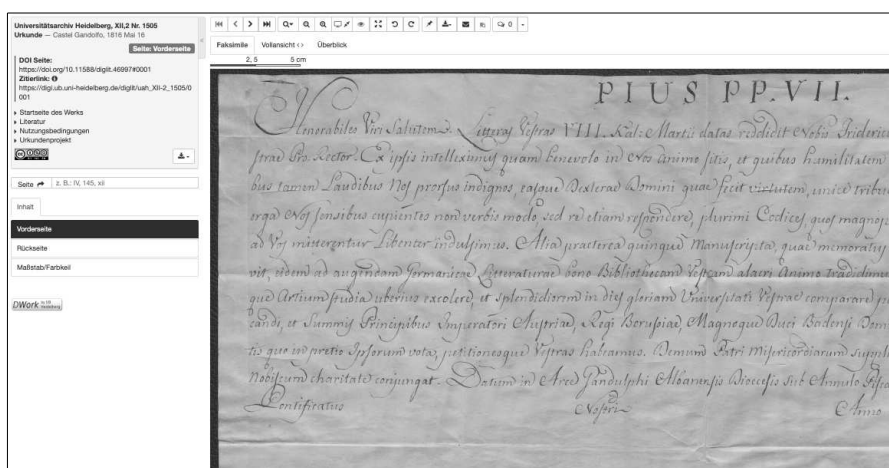 Universitätsarchiv Heidelberg, XII,2 Nr. 1505
Urkunde — Castel Gandolfo, 1816 Mai 16
Seite: Vorderseite
DOI Seite:
https://doi.org/10.11588/diglit.46997#0001
Zitierlink:
https://digi.ub.uni-heidelberg.de/diglit/uah_XII-2_1505/0
001
Startseite des Werks
Literatur
Nutzungsbedingungen
Urkundenprojekt
Seite
z. B.: IV, 145, xii
Inhalt
Vorderseite
Rückseite
Maßstab/Farbkeil
DWork
0
Faksimile Vollansicht Überblick
2, 5 5 cm
PIUS PP. VII.
Venerabiles Viri Salutem. Litteras Vestras VIII. Kal: Martii datas reddidit Nobis Frideric
strae Pro-Rector. Ex ipsis intelleximus quam benevolo in Nos animo sitis, et quibus humilitatem
bus tamen Laudibus Nos prorsus indignos, easque Dexterae Domini quae fecit virtutem, unice tribue
erga Nos sensibus cupientes non verbis modo, sed re etiam respondere, plurimi Codices, quos magnop
ad Vos mitterentur Libenter indulsimus. Alia praeterea quinque Manuscripta, quae memoratus
vit, eidem ad augendam Germanicae Litteraturae bono Bibliothecam Vestram alacri Animo tradidimus
que Artium studia uberius excolere, et splendidiorem in dies gloriam Universitati Vestrae comparare p
candi, et Summis Principibus Imperatori Austriae, Regi Borussiae, Magnoque Duci Badensi Dom
tis quo in pretio Ipsorum vota, petitionesque Vestras habeamus. Demum Patri Misericordiarum suppli
Nobiscum charitate conjungat. Datum in Arce Gandulphi Albanensis Dioecesis sub Annulo Pisca
Pontificatus Nostri Anno